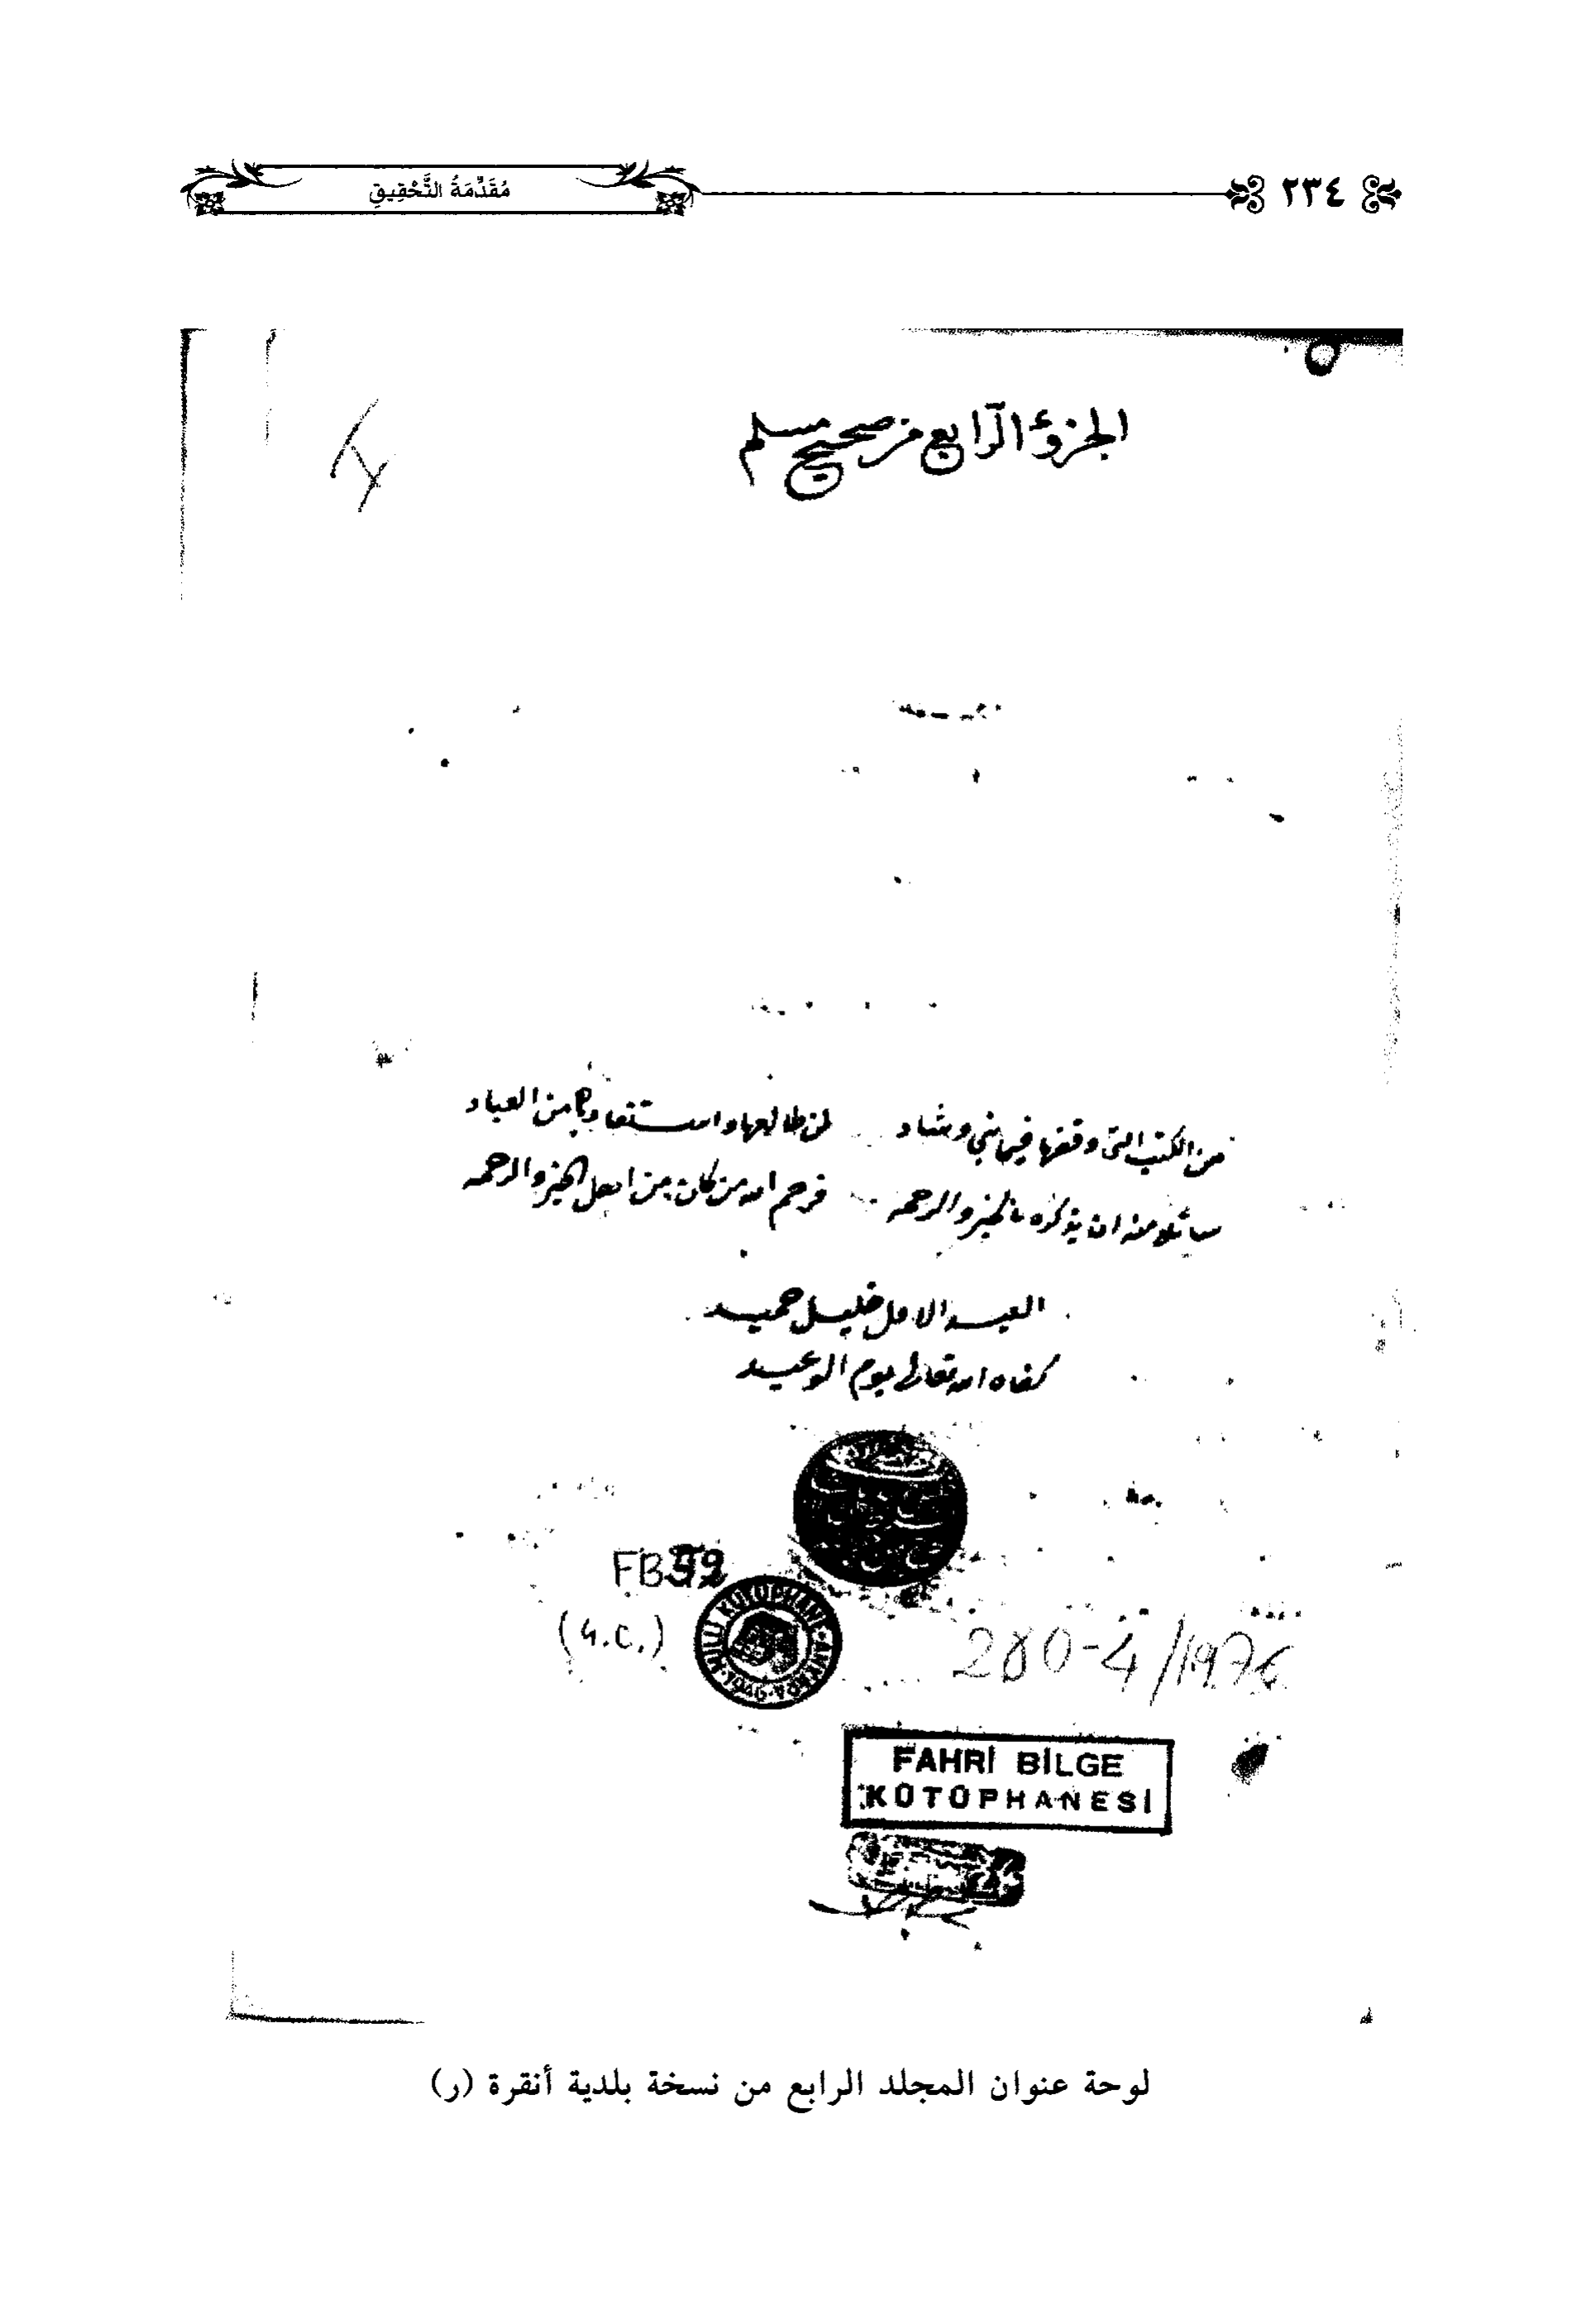 ٢٣٤
مُقَدِّمَةُ التَّحْقِيقِ
الجزؤ الرّابع من صحيح مسلم
من الكتب التى وقفها في بني وشاد لمن طالعها واستفاد بها من العباد
سائلا منه ان يذكره بالخير والرحمه فرحم الله من كان من اهل الخير والرحمه
العبد الاقل خليل حميد
كفاه الله تعالى يوم الوعيد
FB 592
(4.C.)
MİLLİ KÜTÜPHANE ANKARA 1946
280-4/1976
FAHRİ BİLGE
KÜTÜPHANESİ
لوحة عنوان المجلد الرابع من نسخة بلدية أنقرة (ر)